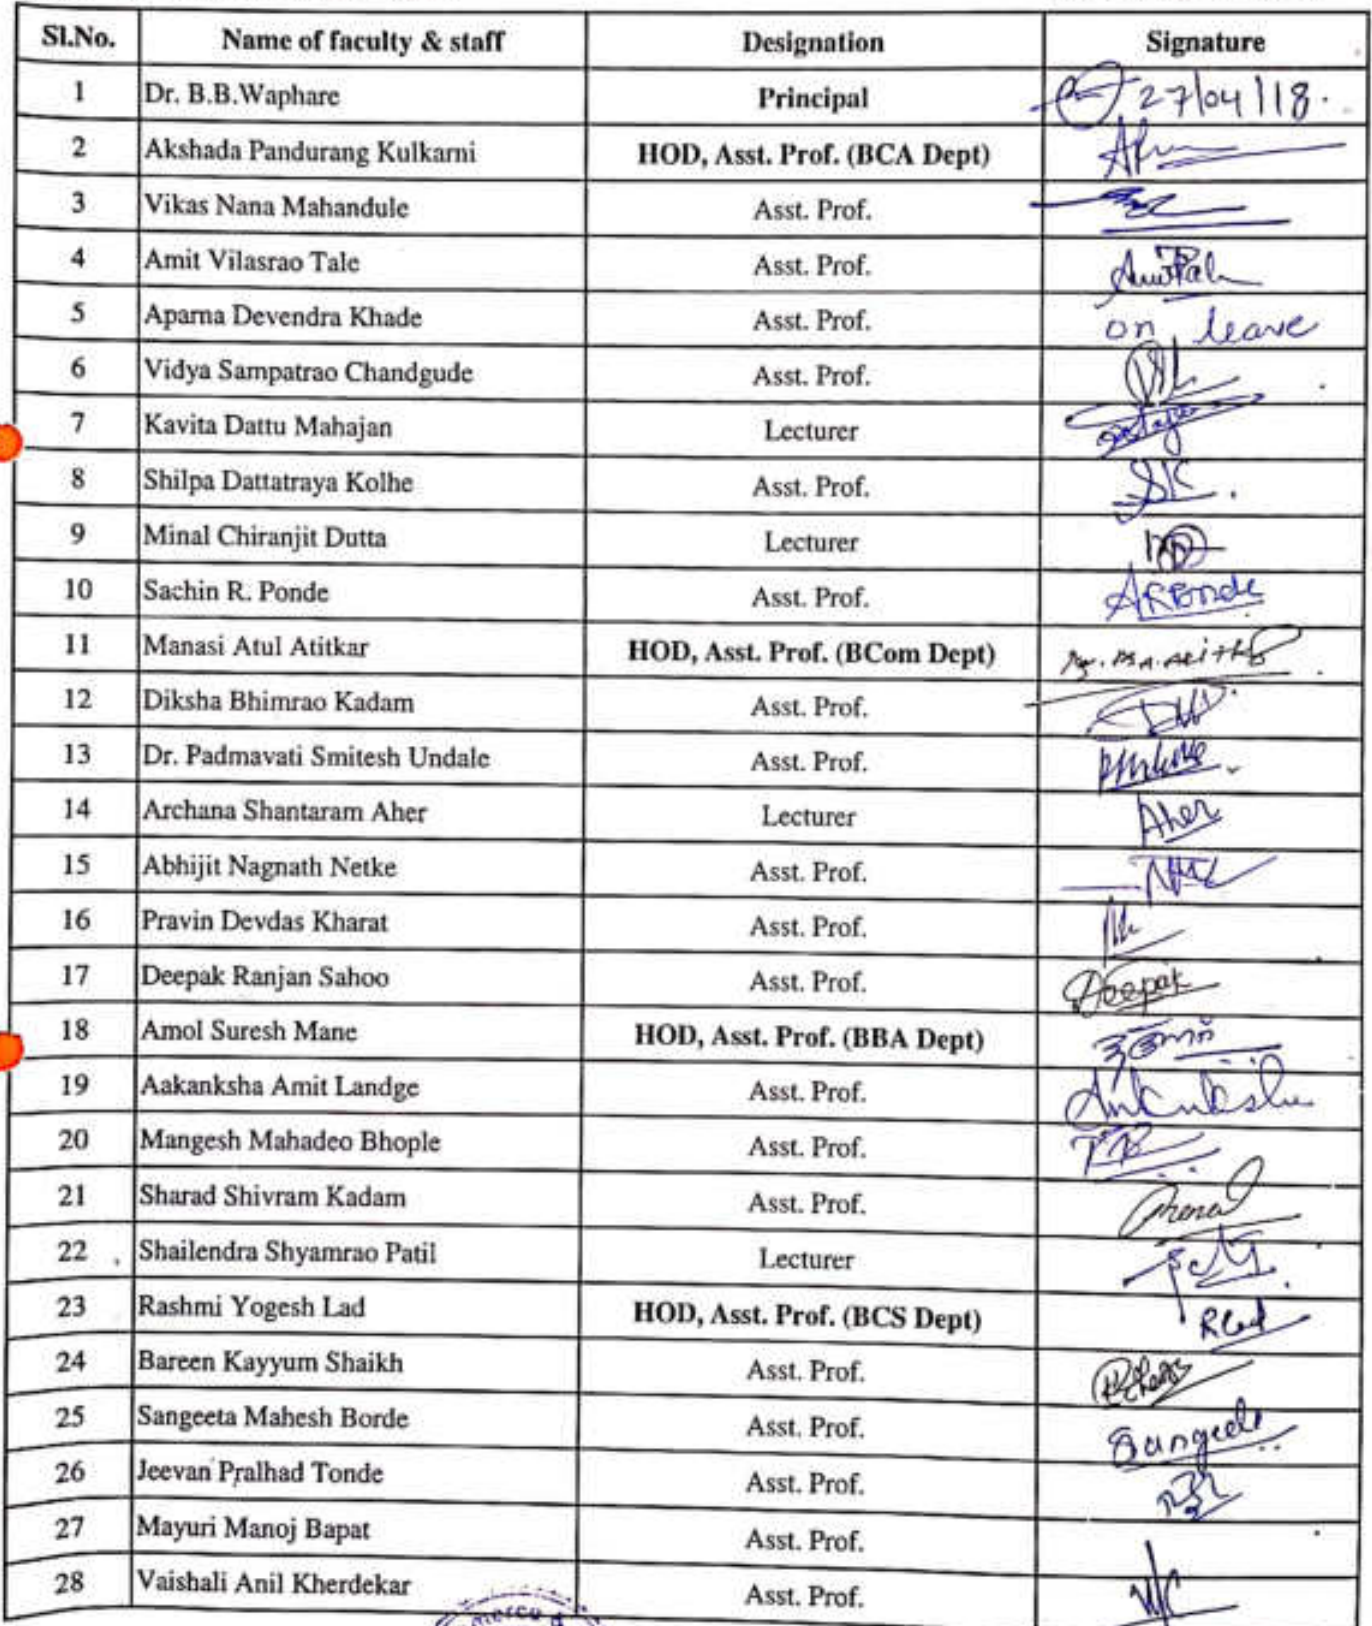 Sl.No. Name of faculty & staff Designation Signature
1 Dr. B.B.Waphare Principal 27/04/18.
2 Akshada Pandurang Kulkarni HOD, Asst. Prof. (BCA Dept)
3 Vikas Nana Mahandule Asst. Prof.
4 Amit Vilasrao Tale Asst. Prof.
5 Aparna Devendra Khade Asst. Prof. on leave
6 Vidya Sampatrao Chandgude Asst. Prof.
7 Kavita Dattu Mahajan Lecturer
8 Shilpa Dattatraya Kolhe Asst. Prof. SK.
9 Minal Chiranjit Dutta Lecturer
10 Sachin R. Ponde Asst. Prof.
11 Manasi Atul Atitkar HOD, Asst. Prof. (BCom Dept)
12 Diksha Bhimrao Kadam Asst. Prof.
13 Dr. Padmavati Smitesh Undale Asst. Prof.
14 Archana Shantaram Aher Lecturer Aher
15 Abhijit Nagnath Netke Asst. Prof.
16 Pravin Devdas Kharat Asst. Prof.
17 Deepak Ranjan Sahoo Asst. Prof. Deepak
18 Amol Suresh Mane HOD, Asst. Prof. (BBA Dept)
19 Aakanksha Amit Landge Asst. Prof.
20 Mangesh Mahadeo Bhople Asst. Prof.
21 Sharad Shivram Kadam Asst. Prof.
22 Shailendra Shyamrao Patil Lecturer
23 Rashmi Yogesh Lad HOD, Asst. Prof. (BCS Dept) RLad
24 Bareen Kayyum Shaikh Asst. Prof.
25 Sangeeta Mahesh Borde Asst. Prof.
26 Jeevan Pralhad Tonde Asst. Prof.
27 Mayuri Manoj Bapat Asst. Prof.
28 Vaishali Anil Kherdekar Asst. Prof.